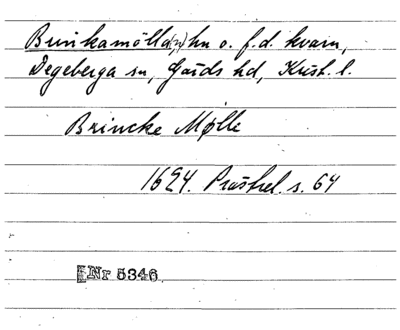 Brinkamölla(n), hn o. f.d. kvarn,
Degeberga sn, Gärds hd, Krist. l.
Brincke Mølle
1624. Prästrel. s. 64
Nr 5346